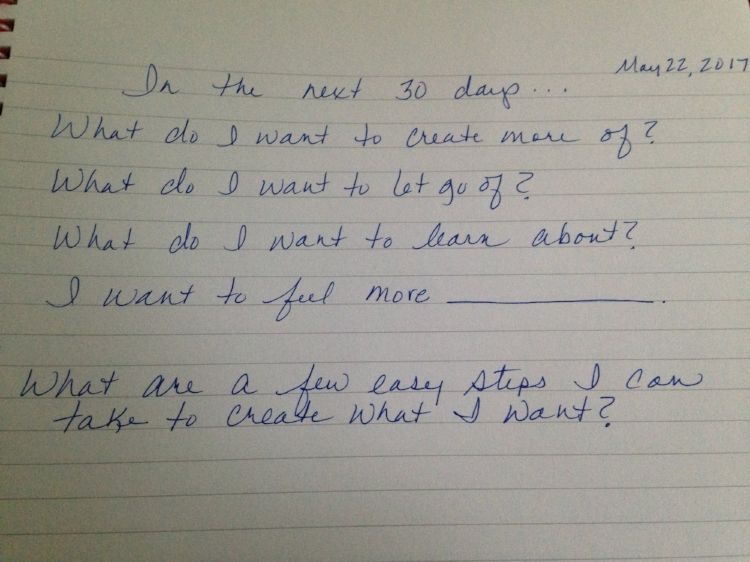 May 22, 2017
In the next 30 days...
What do I want to create more of?
What do I want to let go of?
What do I want to learn about?
I want to feel more ____________.
What are a few easy steps I can
take to create what I want?